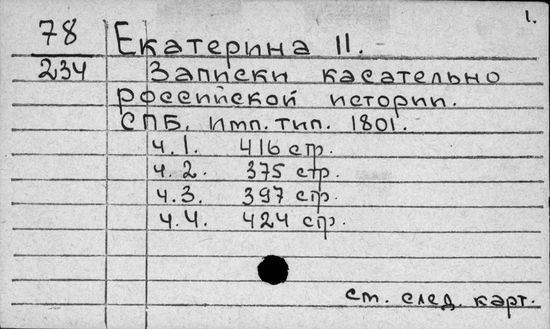 1.
78 Екатерина II.
234 Записки касательно
российской истории.
СПБ, имп. тип. 1801.
ч. 1. 416 стр.
ч. 2. 375 стр.
ч. 3. 397 стр.
ч. 4. 424 стр.
ст. след. карт.